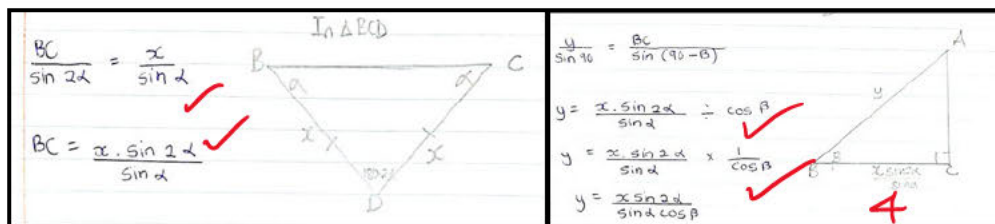 In ΔBCD
BC/sin 2α = x/sin α
BC = x . sin 2α/sin α
B
C
α
α
x
x
D
y/sin 90 = BC/sin (90 - B)
y = x . sin 2α/sin α ÷ cos β
y = x . sin 2α/sin α × 1/cos β
y = x sin 2α/sin α cos β
A
y
B
β
C
x sin 2α/sin α
4